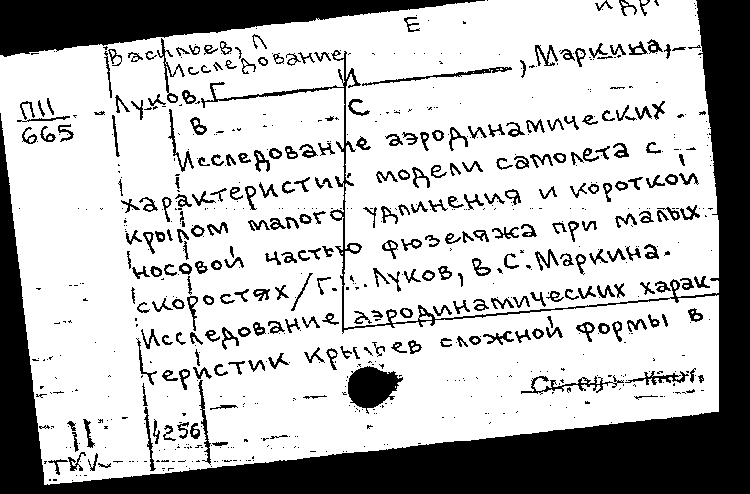 Е и др.
Васильев, Л
Исследование
Луков, Г И , Маркина,
П11
665
В С
Исследование аэродинамических
характеристик модели самолета с
крылом малого удлинения и короткой
носовой частью фюзеляжа при малых
скоростях / Г.И. Луков, В.С. Маркина.
Исследование аэродинамических харак-
теристик крыльев сложной формы в
См. обр. карт.
11 4256